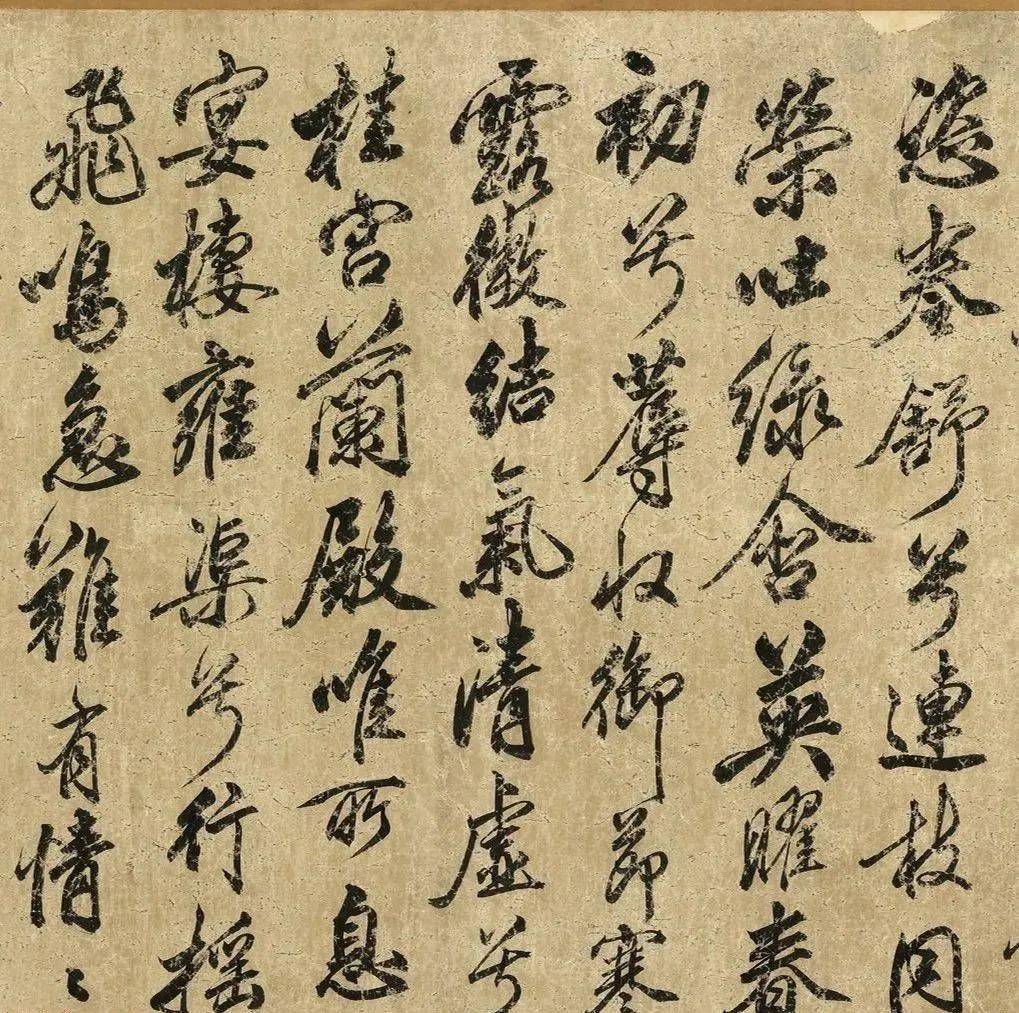 恣卷舒兮連枝同
榮吐綠含英曜春
初兮蓐收御節寒
露微結氣清虛兮
桂宮蘭殿唯所息
宴棲雍渠兮行搖
飛鳴急難有情〻